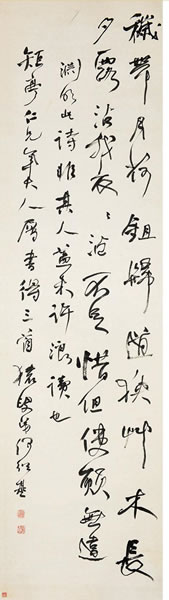 穢帶月荷鉏歸道狹草木長
夕露沾我衣〻沾不足惜但使願無違
淵明此詩非其人蓋未許浪讀也
矩亭仁兄年大人屬書得三首猨叟弟何紹基